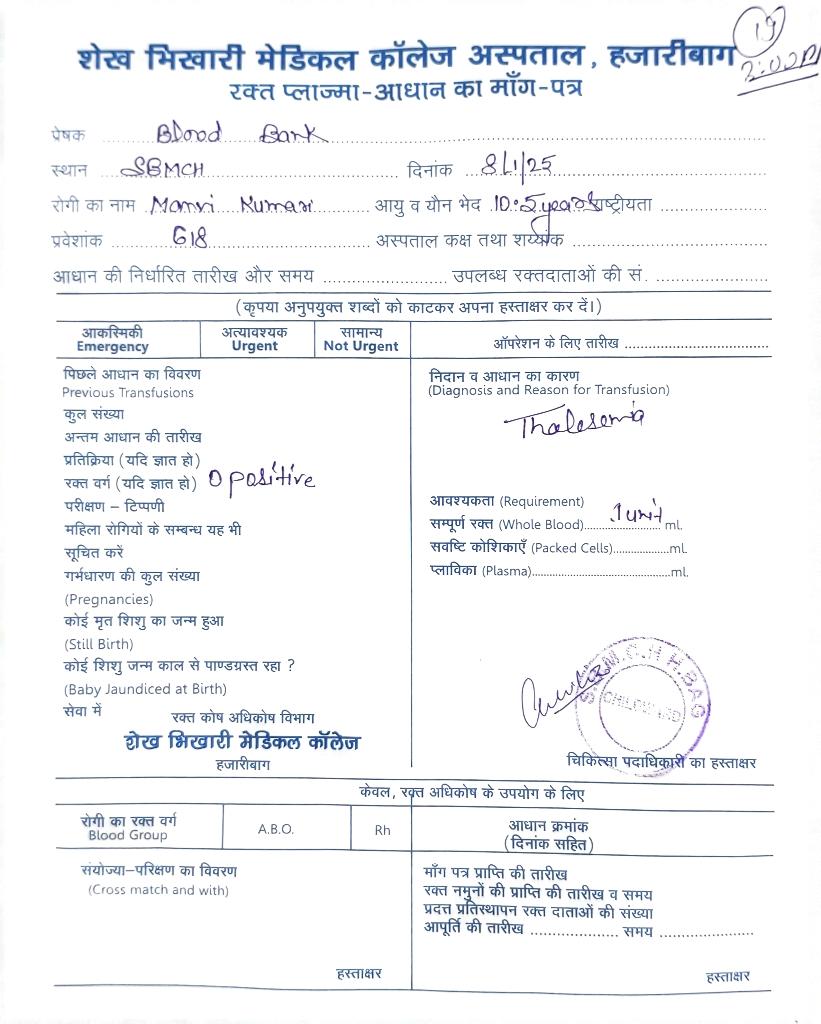 19
2:00 PM
शेख भिखारी मेडिकल कॉलेज अस्पताल, हजारीबाग
रक्त प्लाज्मा-आधान का माँग-पत्र
प्रेषक Blood Bank
स्थान SBMCH दिनांक 8/1/25
रोगी का नाम Manvi Kumar आयु व यौन भेद 10.5 years राष्ट्रीयता
प्रवेशांक 618 अस्पताल कक्ष तथा शय्यांक
आधान की निर्धारित तारीख और समय उपलब्ध रक्तदाताओं की सं.
(कृपया अनुपयुक्त शब्दों को काटकर अपना हस्ताक्षर कर दें।)
आकस्मिकी अत्यावश्यक सामान्य
Emergency Urgent Not Urgent
ऑपरेशन के लिए तारीख
पिछले आधान का विवरण
Previous Transfusions
कुल संख्या
अन्तम आधान की तारीख
प्रतिक्रिया (यदि ज्ञात हो)
रक्त वर्ग (यदि ज्ञात हो) O positive
परीक्षण – टिप्पणी
महिला रोगियों के सम्बन्ध यह भी
सूचित करें
गर्भधारण की कुल संख्या
(Pregnancies)
कोई मृत शिशु का जन्म हुआ
(Still Birth)
कोई शिशु जन्म काल से पाण्डग्रस्त रहा ?
(Baby Jaundiced at Birth)
सेवा में
रक्त कोष अधिकोष विभाग
शेख भिखारी मेडिकल कॉलेज
हजारीबाग
निदान व आधान का कारण
(Diagnosis and Reason for Transfusion)
Thalesemia
आवश्यकता (Requirement)
सम्पूर्ण रक्त (Whole Blood) 1 unit ml.
सवष्टि कोशिकाएँ (Packed Cells) ml.
प्लाविका (Plasma) ml.
S.B.M.C.H H.BAG
CHILD WARD
चिकित्सा पदाधिकारी का हस्ताक्षर
केवल, रक्त अधिकोष के उपयोग के लिए
रोगी का रक्त वर्ग
Blood Group
A.B.O.
Rh
आधान क्रमांक
(दिनांक सहित)
संयोज्या–परिक्षण का विवरण
(Cross match and with)
हस्ताक्षर
माँग पत्र प्राप्ति की तारीख
रक्त नमुनों की प्राप्ति की तारीख व समय
प्रदत्त प्रतिस्थापन रक्त दाताओं की संख्या
आपूर्ति की तारीख समय
हस्ताक्षर